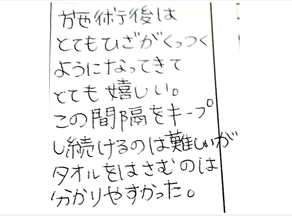 施術後は
とてもひざがくっつく
ようになってきて
とても嬉しい。
この間隔をキープ
し続けるのは難しいが
タオルをはさむのは
分かりやすかった。